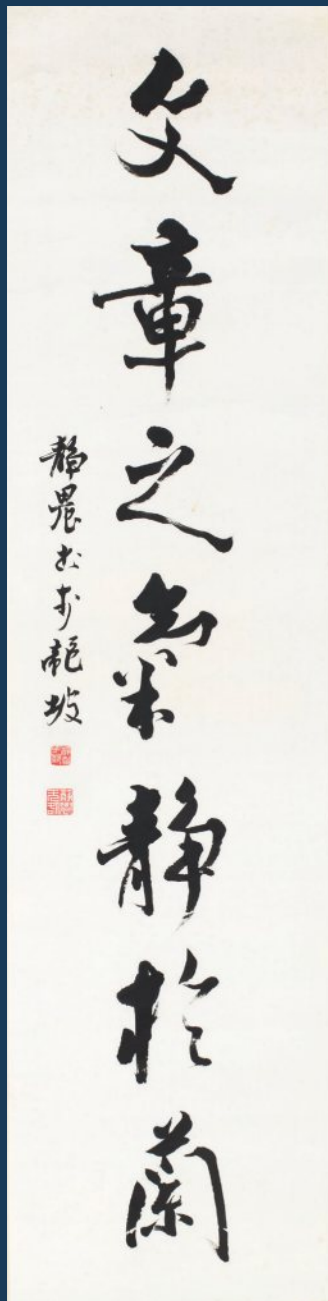 文章之氣靜於蘭
靜農書於龍坡